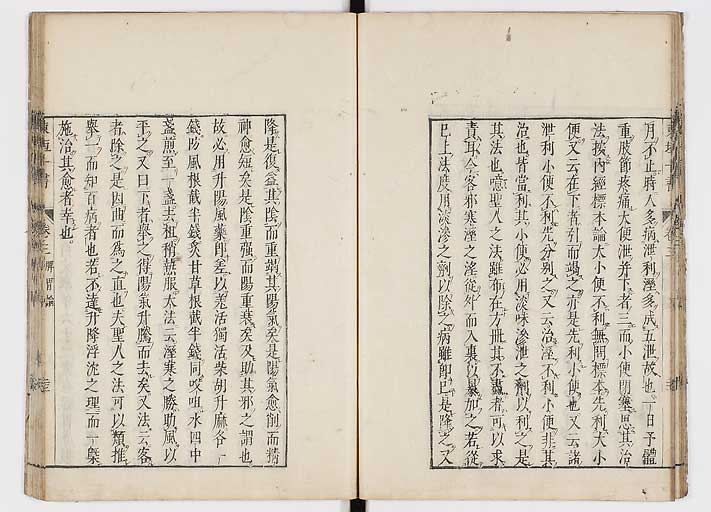 月不止時人多病泄利濕多成五泄故也一日予體
重肢節疼痛大便泄并下者三而小便閉塞思其治
法按內經標本論大小便不利無問標本先利大小
便又云在下者引而竭之亦是先利小便也又云諸
泄利小便不利先分別之又云治濕不利小便非其
治也皆當利其小便必用淡味滲泄之劑以利之是
其法也噫聖人之法雖布在方冊其不盡者可以求
責耳今客邪寒濕之淫從外而入裏以暴加之若從
已上法度用淡滲之劑以除之病雖即已是降之又
降是復益其陰而重竭其陽氣矣是陽氣愈削而精
神愈短矣是陰重強而陽重衰矣反助其邪之謂也
故必用升陽風藥即差以羌活獨活柴胡升麻各一
錢防風根截半錢炙甘草根截半錢同㕮咀水四中
盞煎至一盞去柤稍熱服大法云濕寒之勝助風以
平之又曰下者舉之得陽氣升騰而去矣又法云客
者除之是因曲而為之直也夫聖人之法可以類推
舉一而知百病者也若不達升降浮沈之理而一槩
施治其愈者幸也
東垣十書
卷三
脾胃論